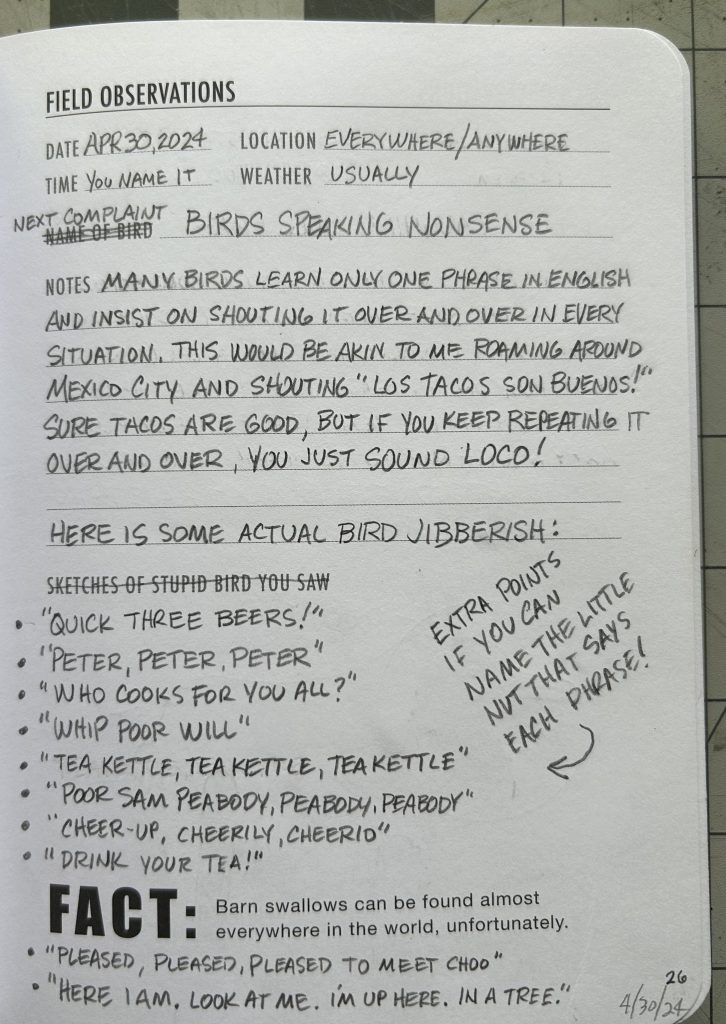 FIELD OBSERVATIONS
DATE APR 30, 2024 LOCATION EVERYWHERE/ANYWHERE
TIME YOU NAME IT WEATHER USUALLY
NEXT COMPLAINT
NAME OF BIRD BIRDS SPEAKING NONSENSE
NOTES MANY BIRDS LEARN ONLY ONE PHRASE IN ENGLISH
AND INSIST ON SHOUTING IT OVER AND OVER IN EVERY
SITUATION. THIS WOULD BE AKIN TO ME ROAMING AROUND
MEXICO CITY AND SHOUTING "LOS TACOS SON BUENOS!"
SURE TACOS ARE GOOD, BUT IF YOU KEEP REPEATING IT
OVER AND OVER, YOU JUST SOUND LOCO!
HERE IS SOME ACTUAL BIRD JIBBERISH:
SKETCHES OF STUPID BIRD YOU SAW
• "QUICK THREE BEERS!"
• "PETER, PETER, PETER"
• "WHO COOKS FOR YOU ALL?"
• "WHIP POOR WILL"
• "TEA KETTLE, TEA KETTLE, TEA KETTLE"
• "POOR SAM PEABODY, PEABODY, PEABODY"
• "CHEER-UP, CHEERILY, CHEERIO"
• "DRINK YOUR TEA!"
EXTRA POINTS
IF YOU CAN
NAME THE LITTLE
NUT THAT SAYS
EACH PHRASE!
FACT: Barn swallows can be found almost
everywhere in the world, unfortunately.
• "PLEASED, PLEASED, PLEASED TO MEET CHOO"
• "HERE I AM. LOOK AT ME. I'M UP HERE. IN A TREE."
26
4/30/24